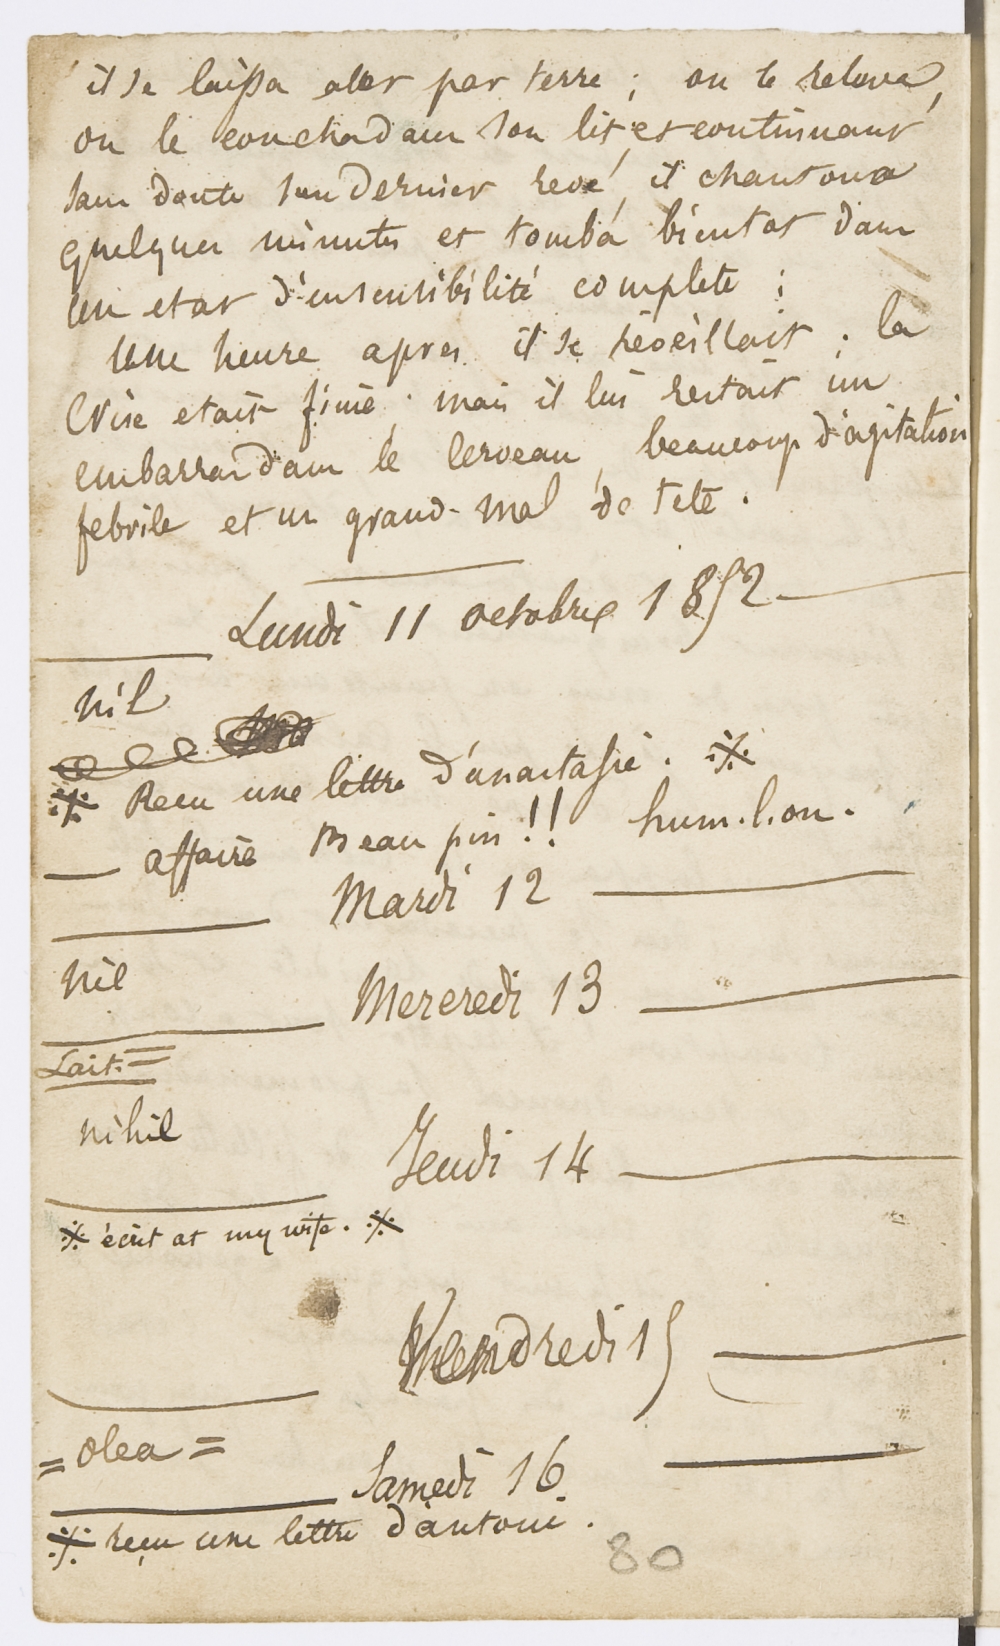 il se laissa aller par terre ; on le releva,
on le coucha dans son lit, et continuant
sans doute son dernier revé, il chantona
quelques minutes et tomba bientot dans
un etat d'insensibilité complete ;
une heure apres il se réveillait . la
crise etait finie ; mais il lui restait un
embarras dans le cerveau, beaucoup d'agitation
febrile et un grand mal de tete .
Lundi 11 octobre 1852
nil
※ Recu une lettre d'anastasie . ※
affaire Beau pin !! hum.l.on.
Mardi 12
nil
Mercredi 13
Lait. =
nihil
Jeudi 14
※ écrit at my wife . ※
Vendredi 15
= olea =
Samedi 16.
※ reçu une lettre d'antoine .
80